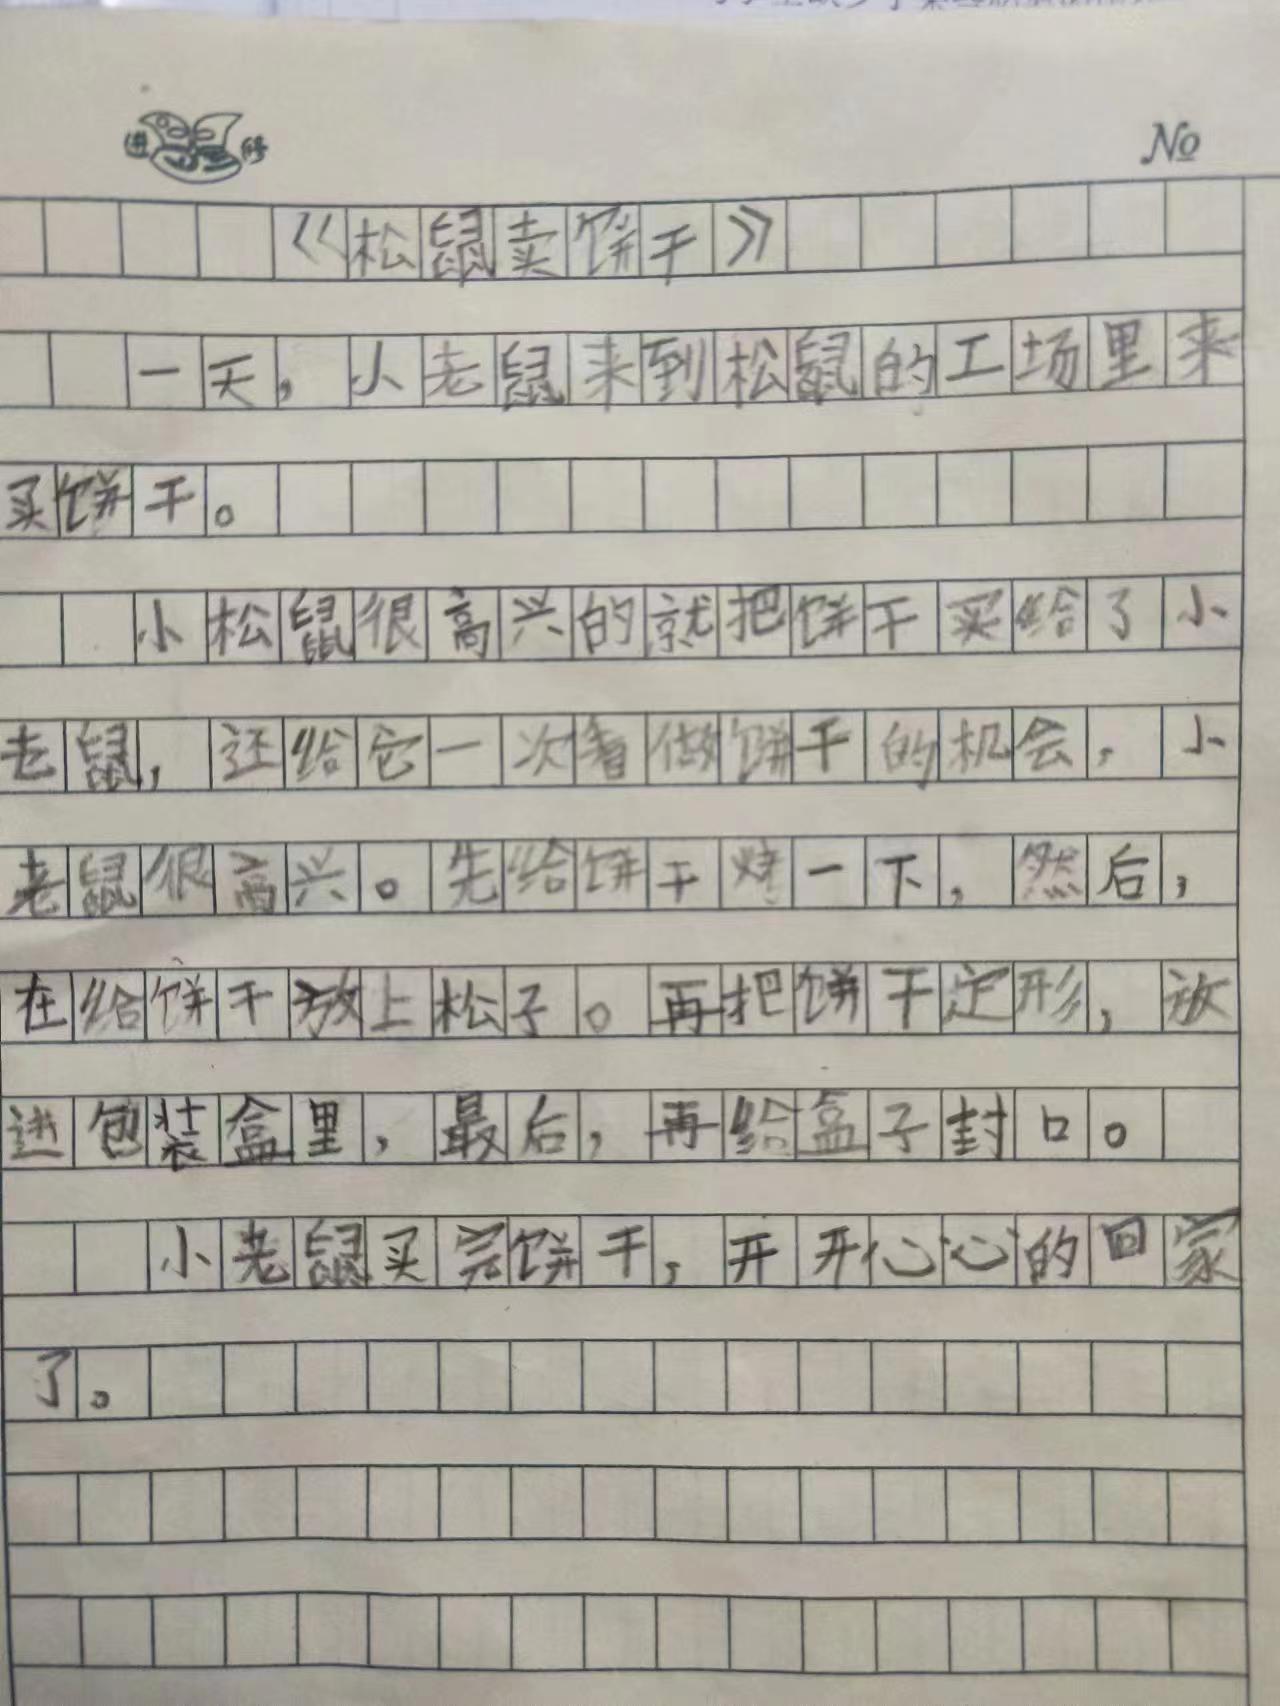 进修
No
《松鼠卖饼干》
一天，小老鼠来到松鼠的工场里来
买饼干。
小松鼠很高兴的就把饼干买给了小
老鼠，还给它一次看做饼干的机会，小
老鼠很高兴。先给饼干烤一下，然后，
在给饼干放上松子。再把饼干定形，放
进包装盒里，最后，再给盒子封口。
小老鼠买完饼干，开开心心的回家
了。